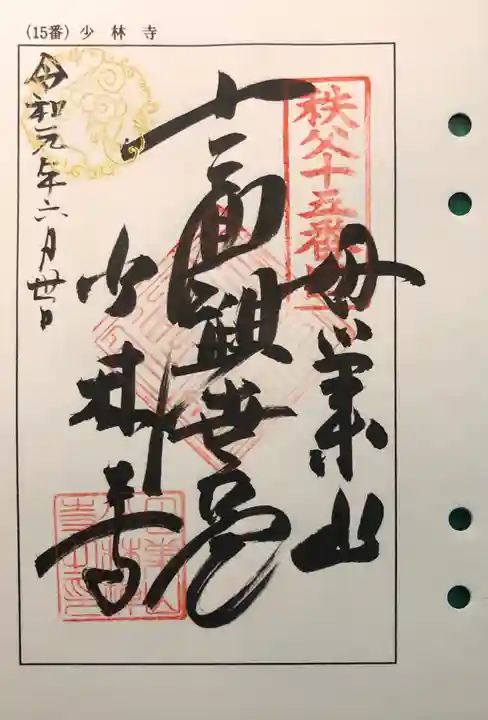 (15番) 少 林 寺
秩父十五番
母巣山
十一面観世音
少林寺
令和元年六月卅日